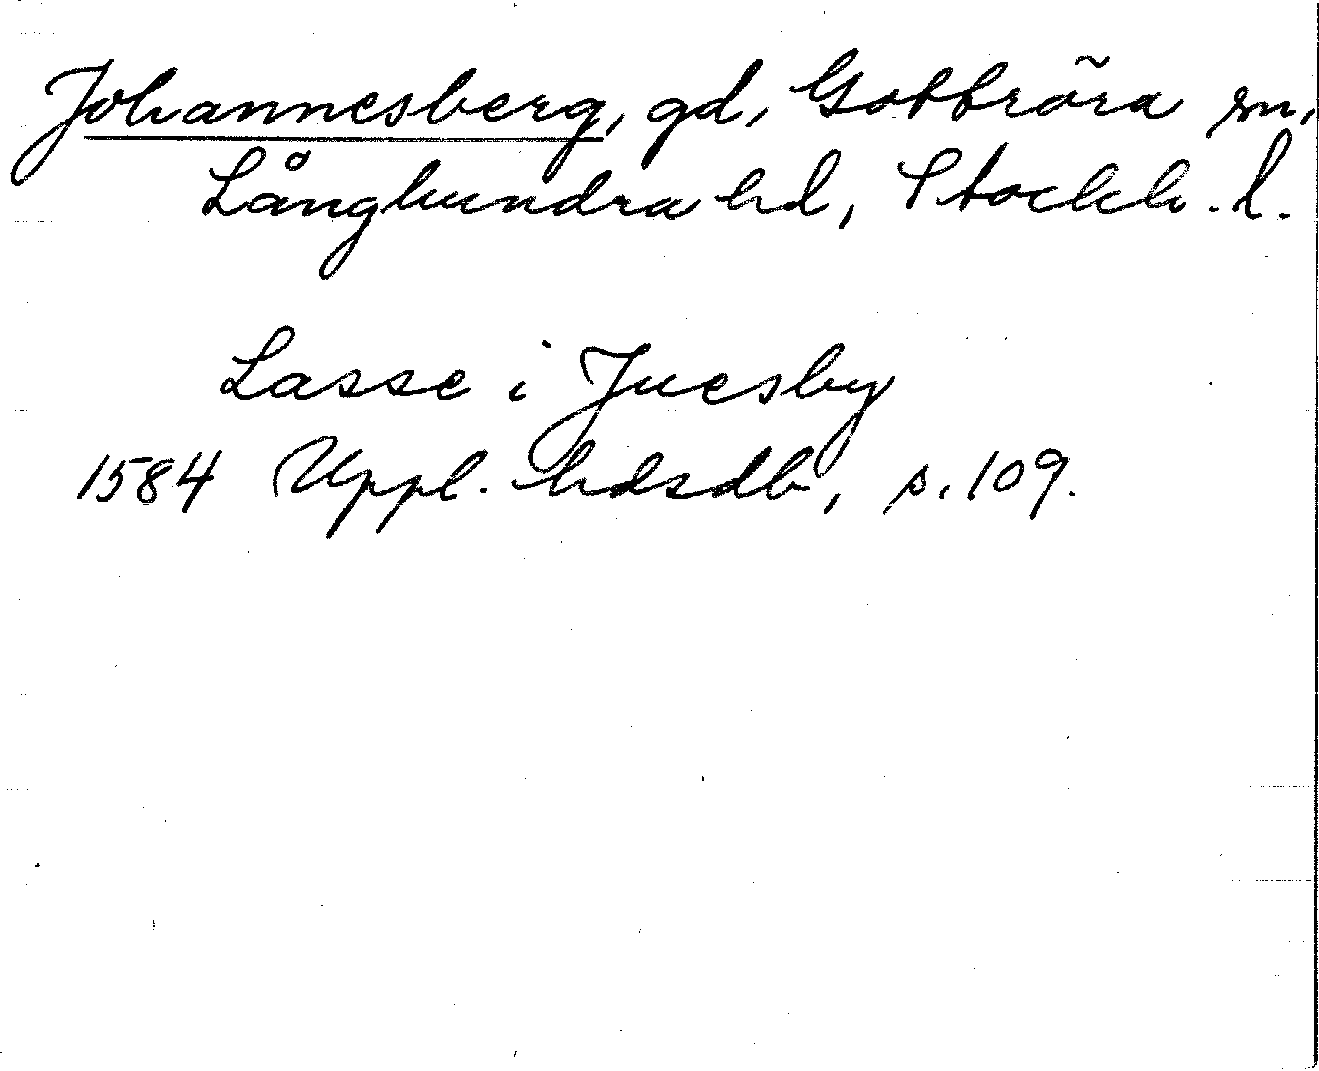 Johannesberg, gd, Gottröra sn,
Långhundra hd, Stockh. l.
Lasse i Juesby
1584 Uppl. hdsdb, s. 109.